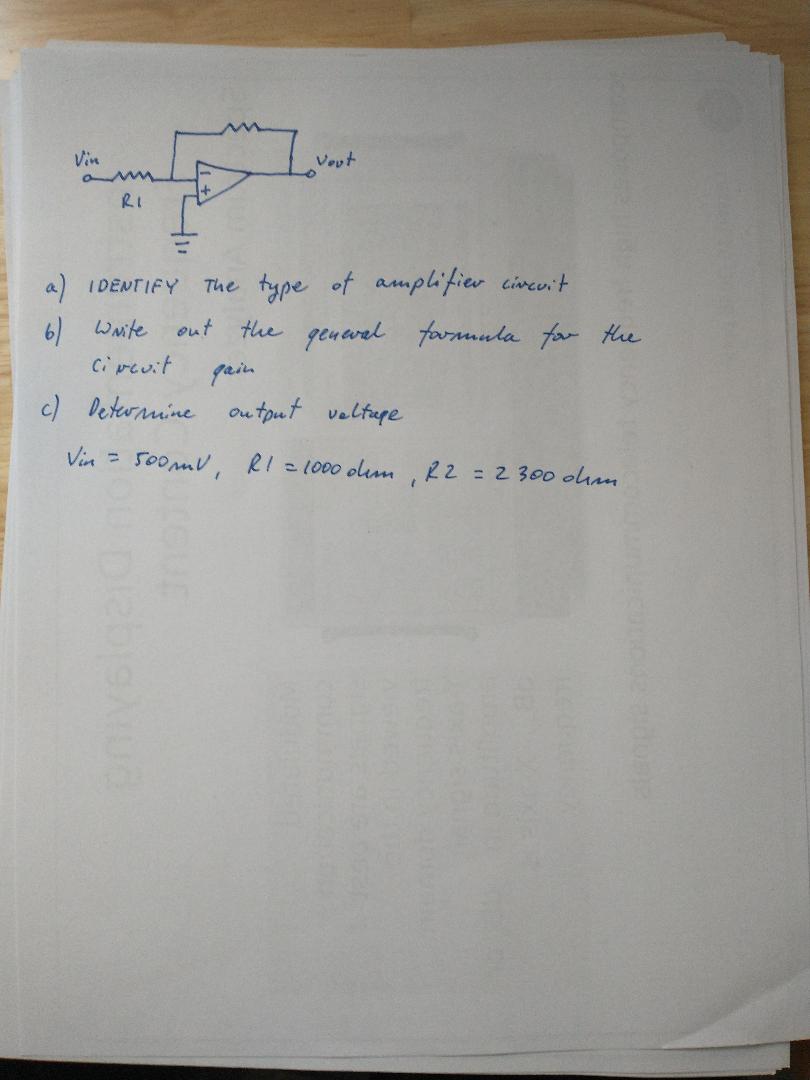 Vin
Vout
R1
-
+
a) IDENTIFY The type of amplifier circuit
b) Write out the general formula for the
circuit gain
c) Determine output voltage
Vin = 500mV, R1 = 1000 ohm, R2 = 2300 ohm